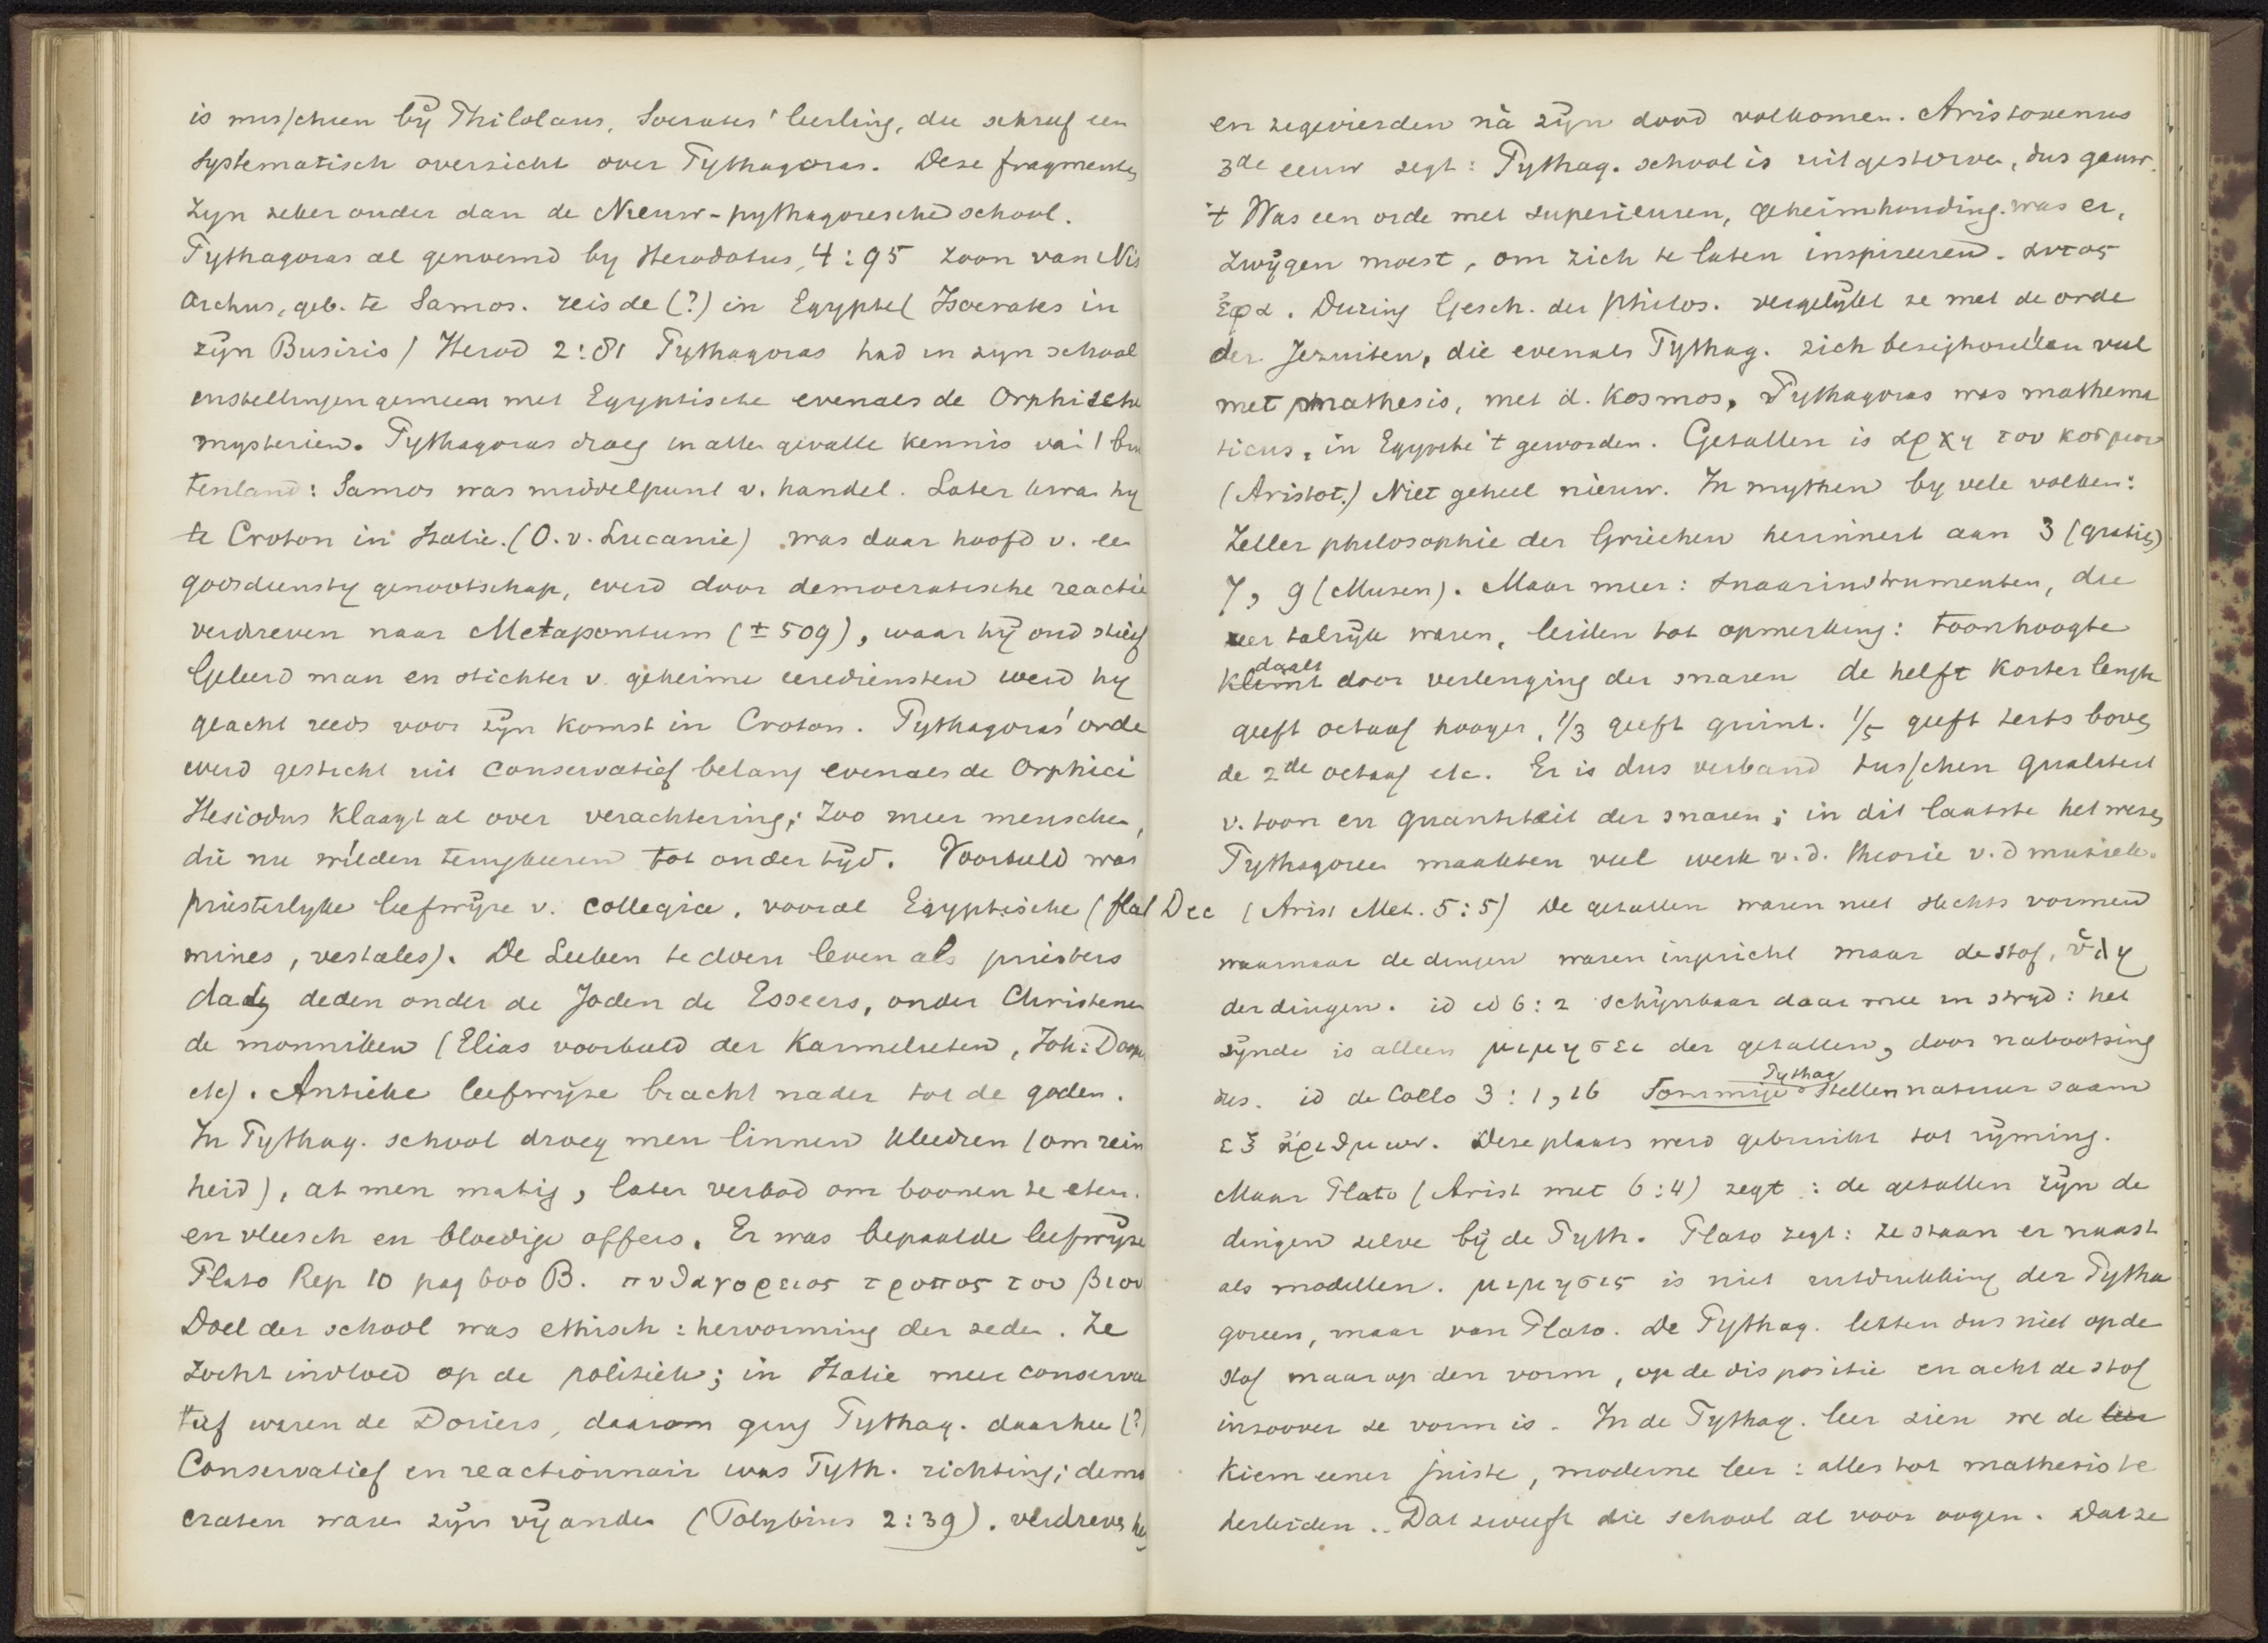 is misschien bÿ Philolaus, Socrates' leerling, die schreef een
systematisch overzicht over Pythagoras. Deze fragmenten
zyn zeker ouder dan de Nieuw-pythagoresche school.
Pythagoras al genoemd by Herodotus, 4:95 zoon van Nis
archus, geb. te Samos. reisde (?) in Egypte (Isocrates in
zÿn Busiris) Herod 2:81 Pythagoras had in zyn school
instellingen gemeen met Egyptische evenals de Orphische
mysteriën. Pythagoras droeg in alle gevalle kennis van 't bui
tenland: Samos was middelpunt v. handel. Later kwam hy
te Croton in Italie. (O.v. Lucanie) was daar hoofd v. een
godsdienstig genootschap, werd door democratische reactie
verdreven naar Metapontum (± 509), waar hÿ oud stierf
Geleerd man en stichter v. geheime eerediensten werd hy
geacht reeds voor zÿn komst in Croton. Pythagoras' orde
werd gesticht uit conservatief belang evenals de Orphici
Hesiodus klaagt al over verachtering; zoo meer menschen,
die nu wilden terugkeeren tot ouder tÿd. Voorbeeld was
priesterlyke leefwÿze v. collegia, vooral Egyptische (fla
mines, vestales). De Leeken te doen leven als priesters
dady deden onder de Joden de Esseers, onder Christenen
de monniken (Elias voorbeeld der Karmelieten, Joh: Doop
etc). Antieke leefwÿze bracht nader tot de goden.
In Pythag. school droeg men linnen kleedren (om rein
heid), at men matig, later verbod om boonen te eten.
en vleesch en bloedige offers. Er was bepaalde leefwÿze
Plato Rep 10 pag 600 B. πυθαγορειος τροπος του βιου
Doel der school was ethisch: hervorming der zeden. Ze
zocht invloed op de politiek; in Italie meer conserva
tief waren de Doriers, daarom ging Pythag. daarheen (?)
Conservatief en reactionnair was Pyth. richting; demo
craten waren zÿn vÿanden (Polybius 2:39). verdreven hy
en zegevierden nà zÿn dood volkomen. Aristoxenus
3de eeuw zegt: Pythag. school is uitgestorven, dus gauw.
't Was een orde met superieuren, geheimhouding was er,
zwÿgen moest, om zich te laten inspireeren. αυτος
ἐφα. During Gesch. der philos. vergelÿkt ze met de orde
der Jezuiten, die evenals Pythag. zich bezighouden veel
met mathesis, met d. Kosmos, Pythagoras was mathema
ticus, in Egypte 't geworden. Getallen is αρχη του κοσμου
(Aristot.) Niet geheel nieuw. In mythen by vele volken:
Zeller philosophie der Griechen herinnert aan 3 (gratiën)
7, 9 (Musen). Maar meer: snaarinstrumenten, die
zeer talrÿk waren, leiden tot opmerking: toonhoogte
daalt
klimt door verlenging der snaren de helft korter lengte
geeft octaaf hooger, 1/3 geeft quint. 1/5 geeft terts boven
de 2de octaaf etc. Er is dus verband tusschen qualiteit
v. toon en quantiteit der snaren; in dit laatste het wezen
Pythagoreen maakten veel werk v.d. theorie v.d muziek.
Dec (Arist Met. 5:5) De getallen waren niet slechts vormen
waarnaar de dingen waren ingericht maar de stof, ὑλη
der dingen. id id 6:2 schÿnbaar daar mee in stryd: het
zÿnde is alleen μιμησει der getallen, door nabootsing
Pythag
dus. id de Coelo 3:1,16 Sommige stellen natuur saam
εξ ἀριθμων. Deze plaats werd gebruikt tot rÿming.
Maar Plato (Arist met 6:4) zegt: de getallen zÿn de
dingen zelve bÿ de Pyth. Plato zegt: ze staan er naast
als modellen. μιμησις is niet uitdrukking der Pytha
goreen, maar van Plato. De Pythag. letten dus niet op de
stof maar op den vorm, op de dispositie en acht de stof
inzoover ze vorm is. In de Pythag. leer zien we de leer
kiem eener juiste, moderne leer: alles tot mathesis te
herleiden. Dat zweeft die school al voor oogen. Dat ze